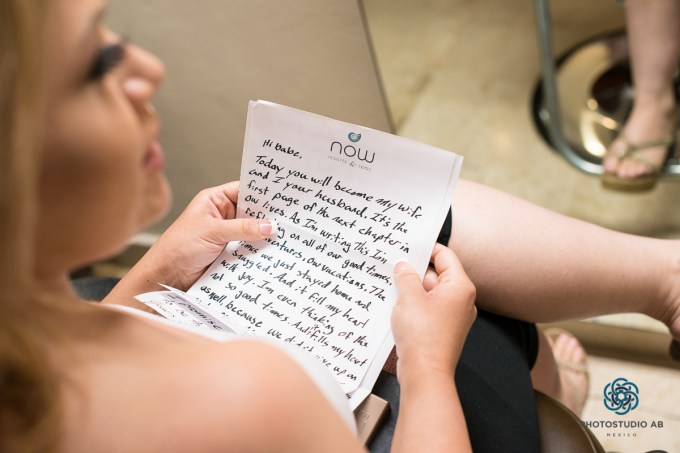 now
resorts & spas
Hi babe,
Today you will become my wife
and I your husband. It's the
first page of the next chapter in
our lives. As I'm writing this I'm
on all of our good times,
Our vacations. The
times we just stayed home and
snuggled. And it fill my heart
with joy. I'm even thinking of the
not so good times. And fills my heart
as well, because we didn't give up on
I promise
PHOTOSTUDIO AB
MEXICO